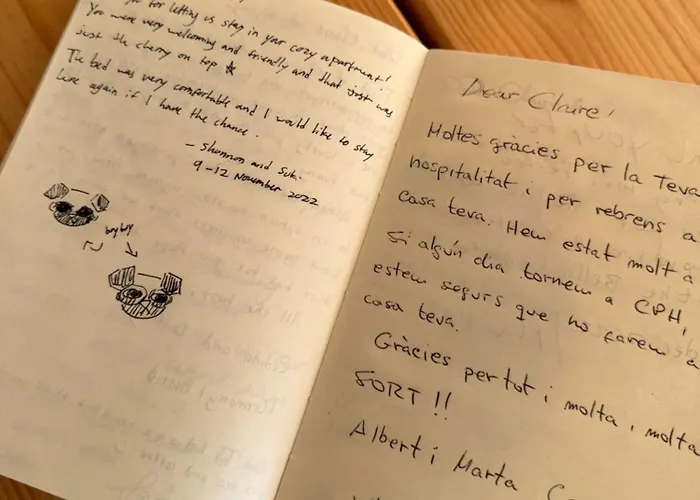 for letting us stay in your cozy apartment!
You were very welcoming and friendly and that just was
just the cherry on top
The bed was very comfortable and I would like to stay
here again if I have the chance.
- Shannon and
9-12 November 2022
Dear Claire!
Moltes gràcies per la Teva
hospitalitat i per rebrens a
casa teva. Hem estat molt a
Si algún dia tornem a CPH,
estem segurs que ho farem a
casa teva.
Gràcies per tot i molta, molta
SORT!!
Albert i Marta